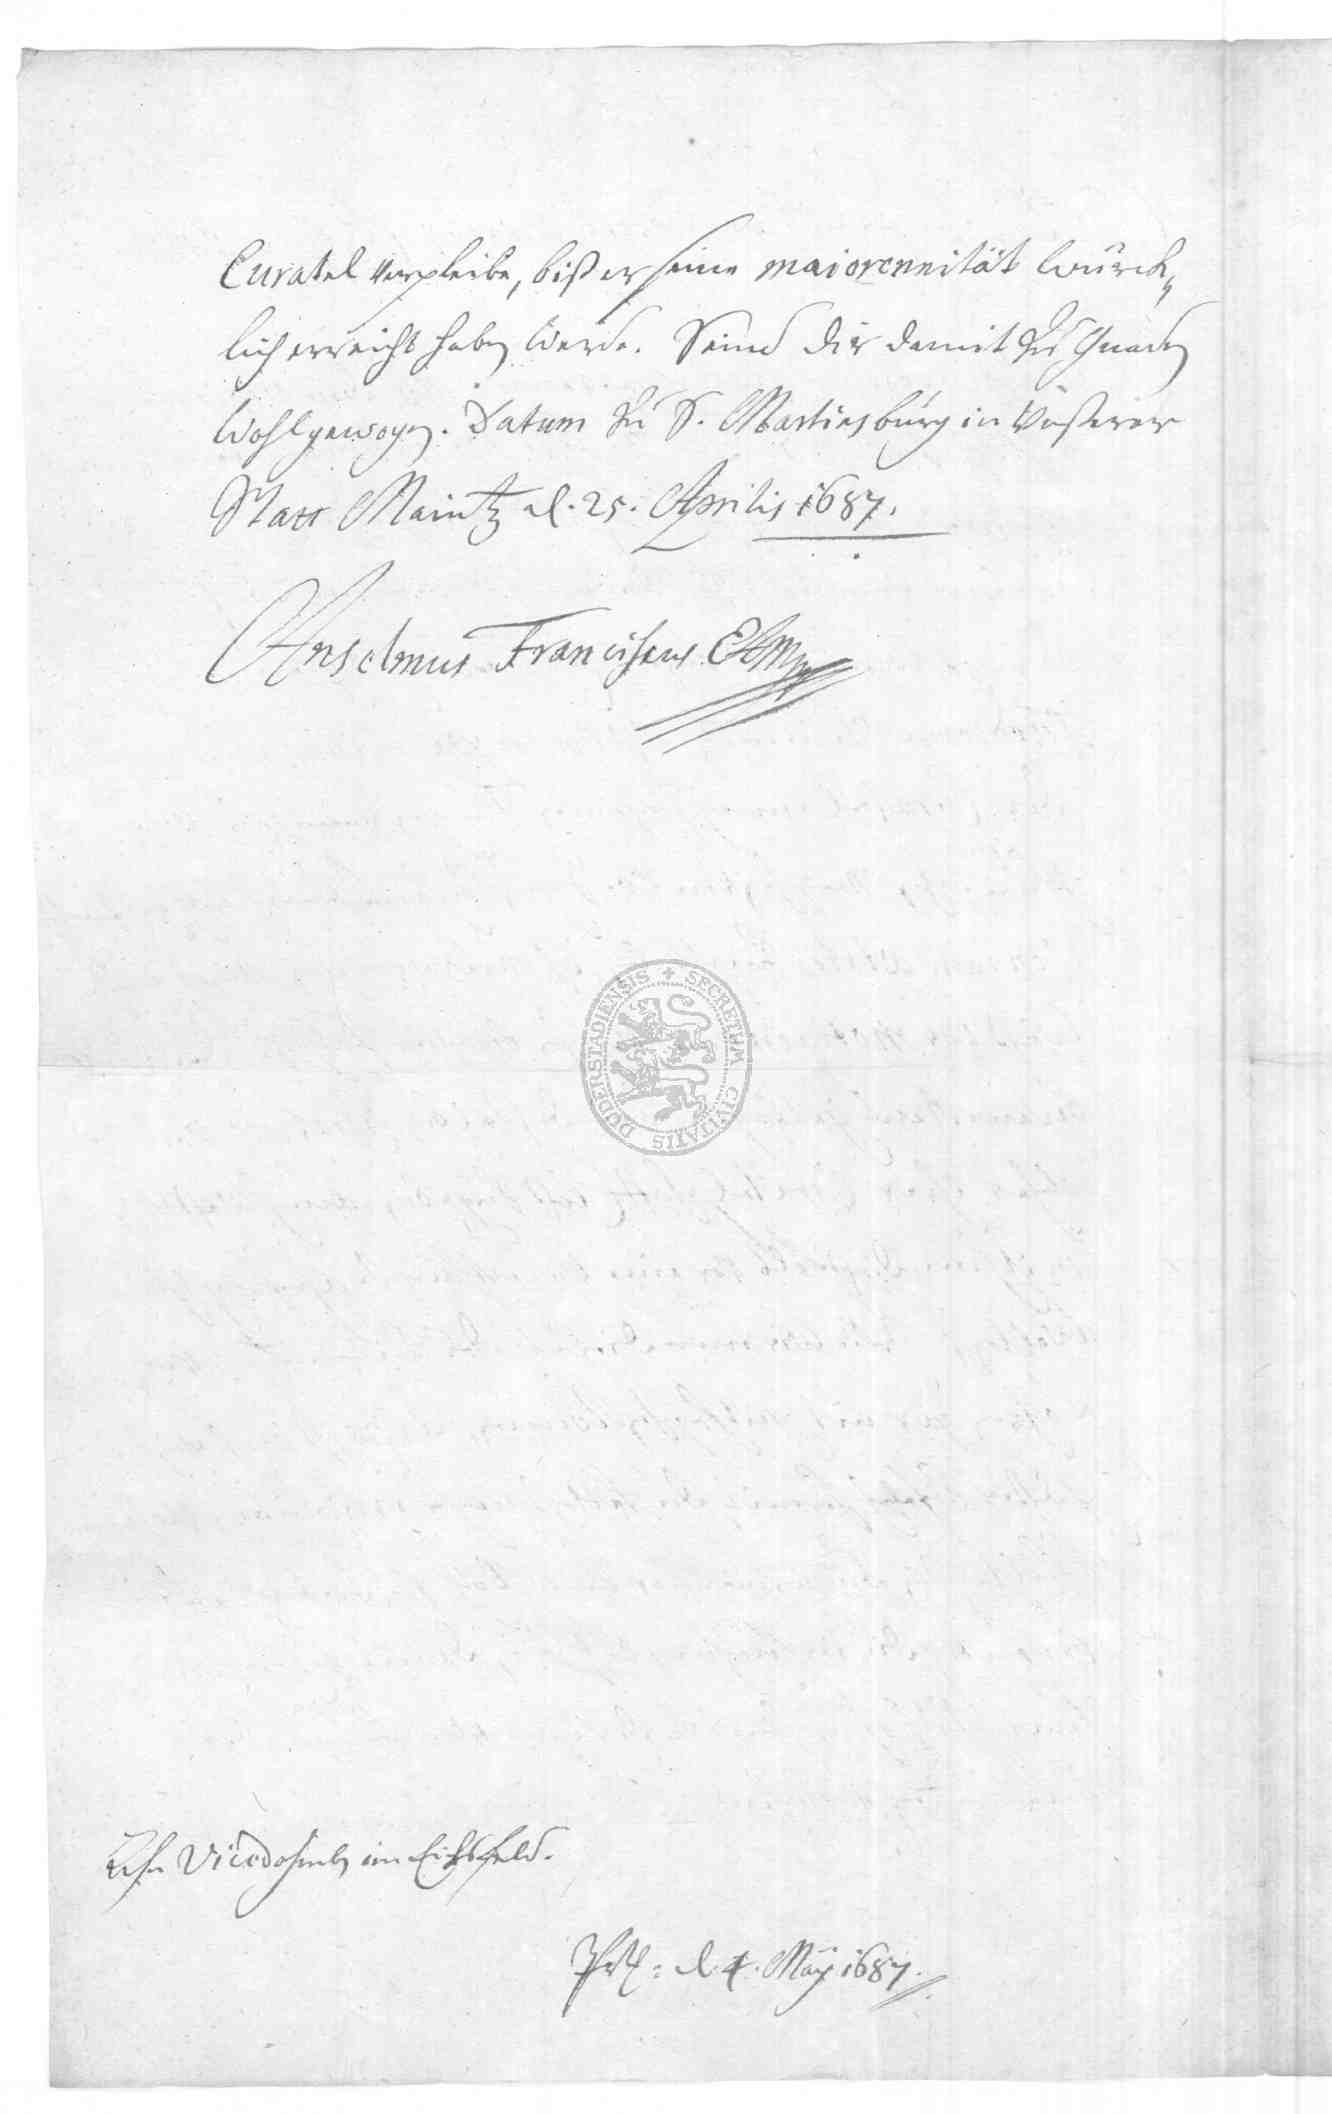 Curatel verpleibe, biß er seine maiorennität würck,
lich erreicht haben werde. Seind dir damit zu Gnaden
wohlgewogen. Datum zu S. Martinsburg in Unserer
Statt Maintz d. 25. Aprilis 1687.
Anselmus Franciscus
SECRETUM CIVITATIS DUDERSTADIENSIS
Vicedohmb im Eichsfeld.
d. 4. Maÿ 1687.